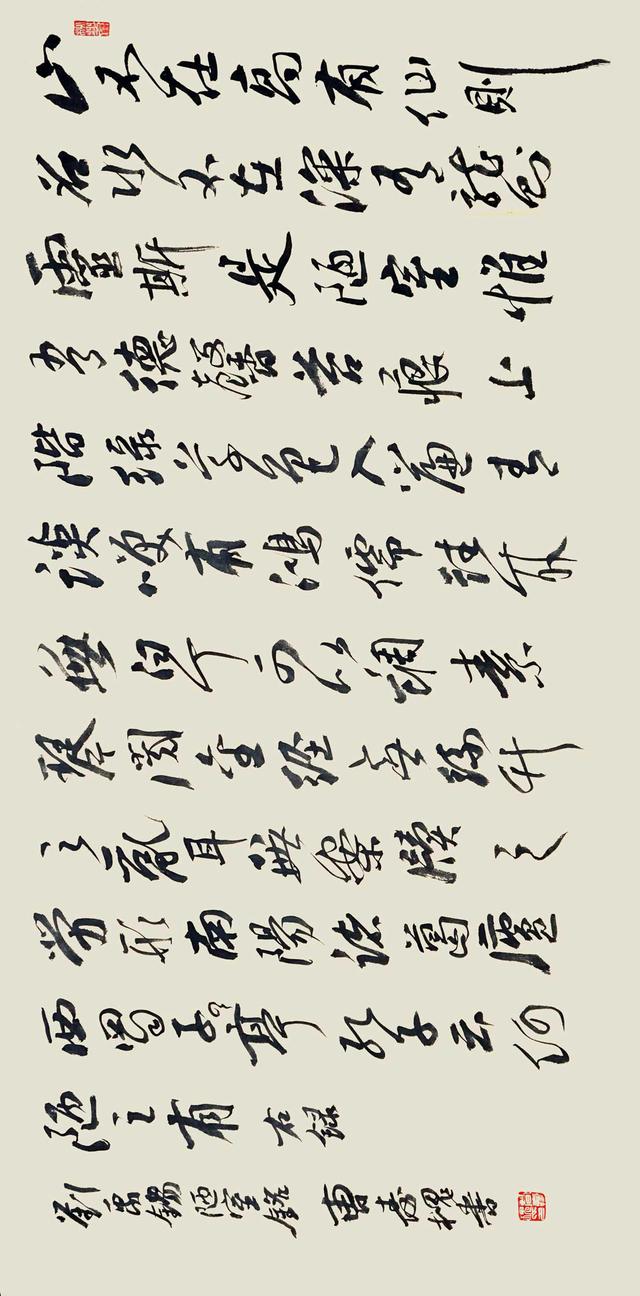 山不在高有仙則
名水不在深有龍
靈斯是陋室惟
吾德馨苔痕上
階綠草色入簾青
談笑有鴻儒往來
無白丁可以調素
琴閱金經無絲竹
之亂耳無案牘之
勞形南陽諸葛廬
西蜀子云亭孔子云何
陋之有 右錄
劉禹錫陋室銘 曹書